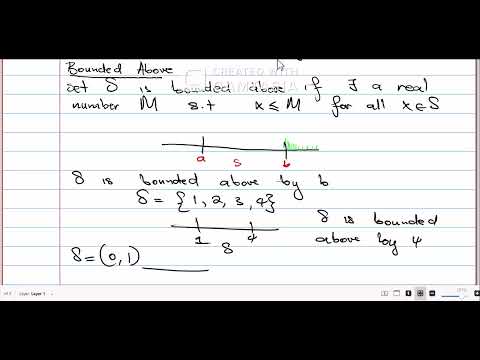 Bounded Above
CREATED WITH
set S is bounded above if ∃ a real
number M s.t x ≤ M for all x ∈ S
a S b
S is bounded above by b
S = {1, 2, 3, 4}
1 S 4
S is bounded
above by 4
S = (0, 1)
Layer: Layer 1